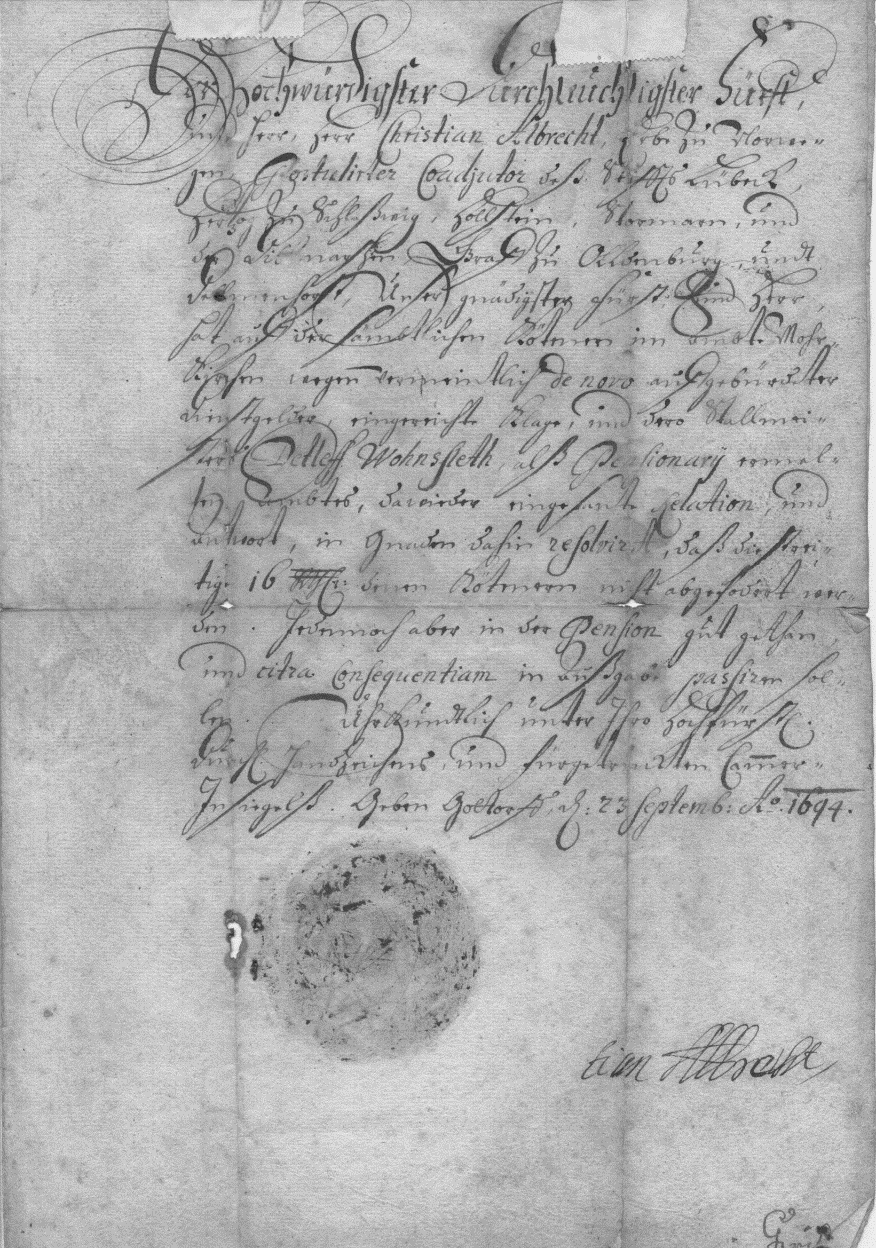 Der Hochwürdigster Durchleuchtigster Fürst,
und Herr, Herr Christian Albrecht, Erbe zu Norwe-
gen, Postulirter Coadjutor deß Stiffts Lübeck,
Hertzog zu Schleßwig, Hollstein, Stormarn, und
der Ditmarschen, Graff zu Oldenburg, undt
Delmenhorst, Unser gnädigster Fürst und Herr,
hat auff der sämbtlichen Kötenern im Ambte Mohr-
Kirchen wegen vermeintlich de novo auffgebürdeter
Dienstgelder, eingereichte Klage, und dero Stallmei-
sters Detleff Wohnsfleth, alß Pensionary ermel-
ten Ambtes, dawieder eingesante Relation, und
Antwort, in Gnaden dahin resolvirt, daß die strei-
tige 16 denen Kötenern nicht abgefodert wer-
den. Jedennoch aber in der Pension gut gethan,
und citra Consequentiam in Außgabe passiren sol-
len. Uhrkundtlich unter Ihro Hochfürstl.
Durchl. Handzeichens, und fürgetrückten Cammer-
Insiegelß. Geben Gottorff, d: 23 Septemb: Ao. 1694.
tian Albrecht